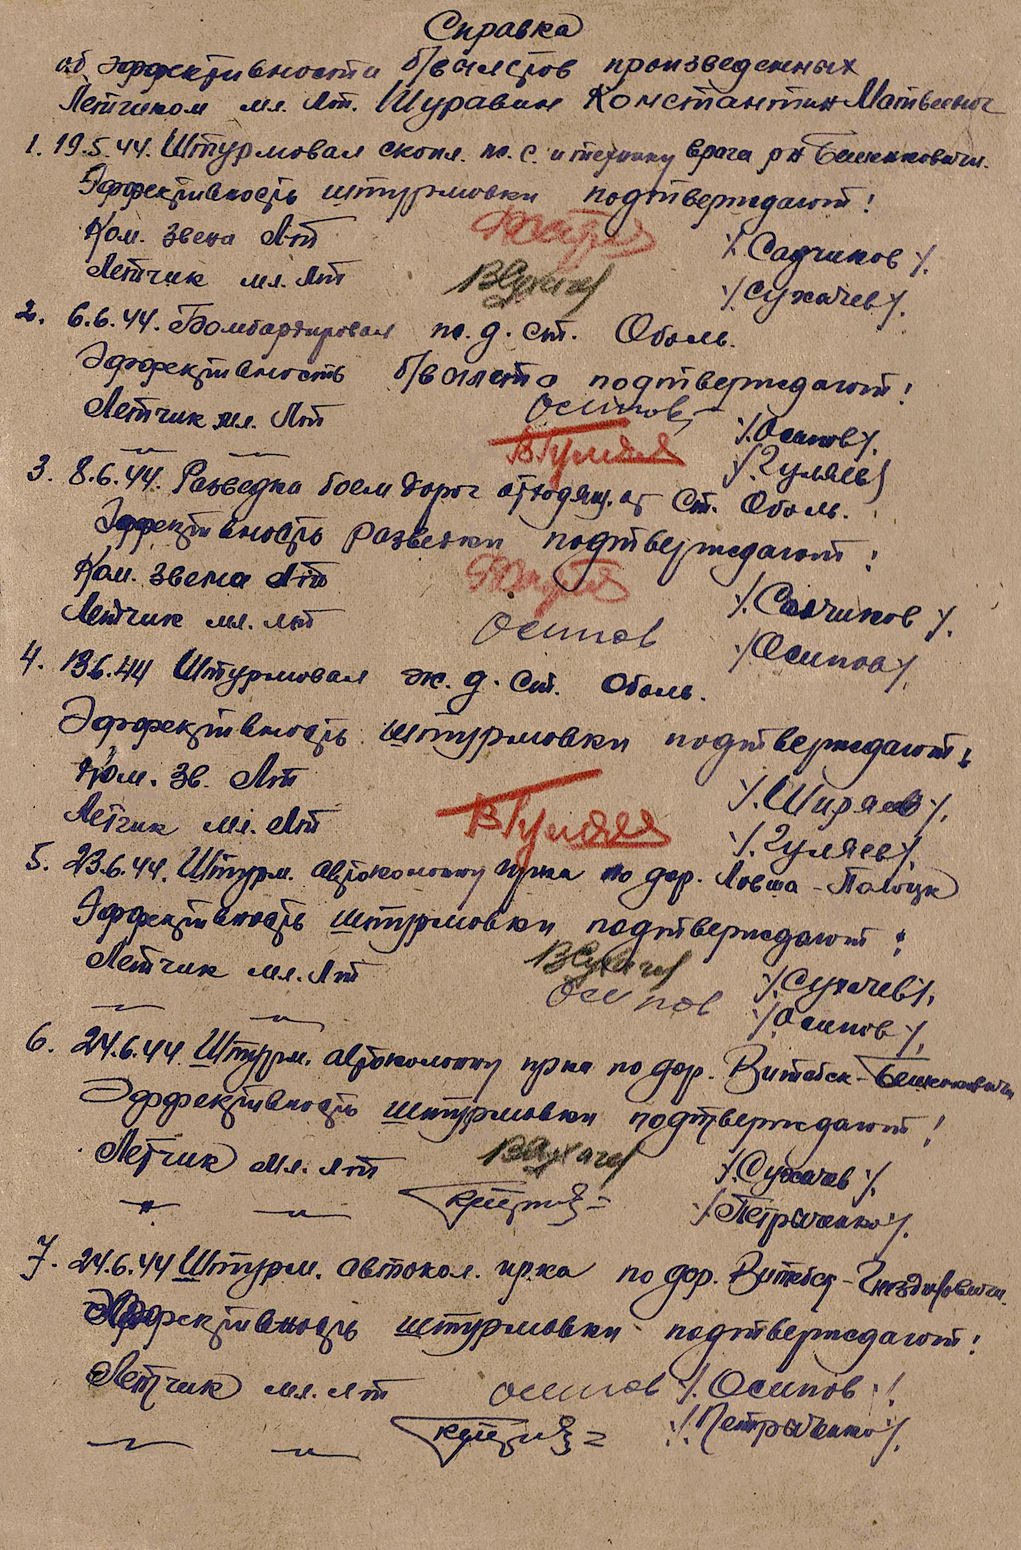 Справка
об эффективности б/вылетов произведенных
Летчиком мл. Лт. Шуравин Константин Матвеевич
1. 19.5.44. Штурмовал скопл. ж. с. и технику врага р-н Бешенковичи.
Эффективность штурмовки подтверждают!
Ком. звена Лт /. Садчиков /.
Летчик мл. Лт /Сухачев/.
2. 6.6.44. Бомбардировал ж. д. ст. Оболь.
Эффективность б/вылета подтверждают!
Летчик мл. Лт Осипов /.Осипов/.
— — ВГуляев /.Гуляев/
3. 8.6.44. Разведка боем дорог отходящ. от ст. Оболь.
Эффективность разведки подтверждают!
Ком. звена Лт /. Садчиков /.
Летчик мл. Лт Осипов /Осипов/.
4. 13.6.44 Штурмовал ж. д. ст. Оболь.
Эффективность штурмовки подтверждают!
Ком. Зв. Лт /.Ширяев/.
Летчик мл. Лт ВГуляев /.Гуляев/.
5. 23.6.44. Штурм. автоколонну пр-ка по дор. Ловша - Полоцк
Эффективность штурмовки подтверждают!
Летчик мл. Лт ВСухачев /.Сухачев/.
— — Осипов /Осипов/.
6. 24.6.44 Штурм. автоколонну пр-ка по дор. Витебск - Бешенковичи
Эффективность штурмовки подтверждают!
Летчик мл. лт ВСухачев /.Сухачев/.
— " — — /Петраченко/.
7. 24.6.44 Штурм. автокол. пр-ка по дор. Витебск - Гнездиловичи.
Эффективность штурмовки подтверждают!
Летчик мл. лт Осипов /. Осипов /
— — /Петраченко/.